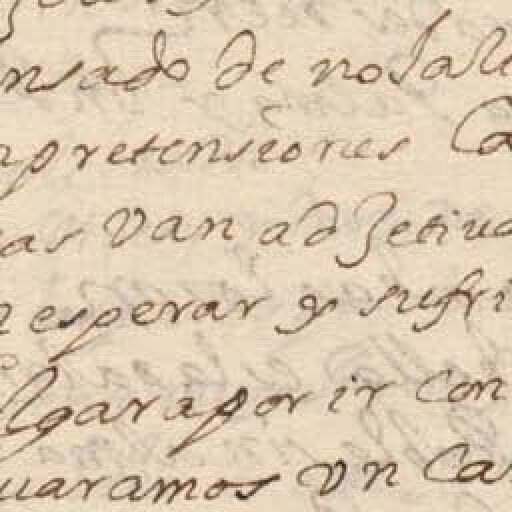 nsado de no sale
pretensiones Ca
as van adzetiua
esperar y sufri
lgara por ir con
uaramos vn Ca